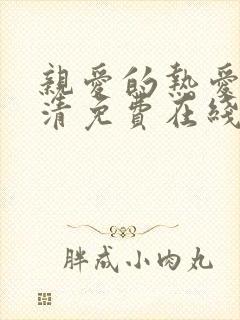 親愛的熱愛
清免費在綫
胖成小肉丸